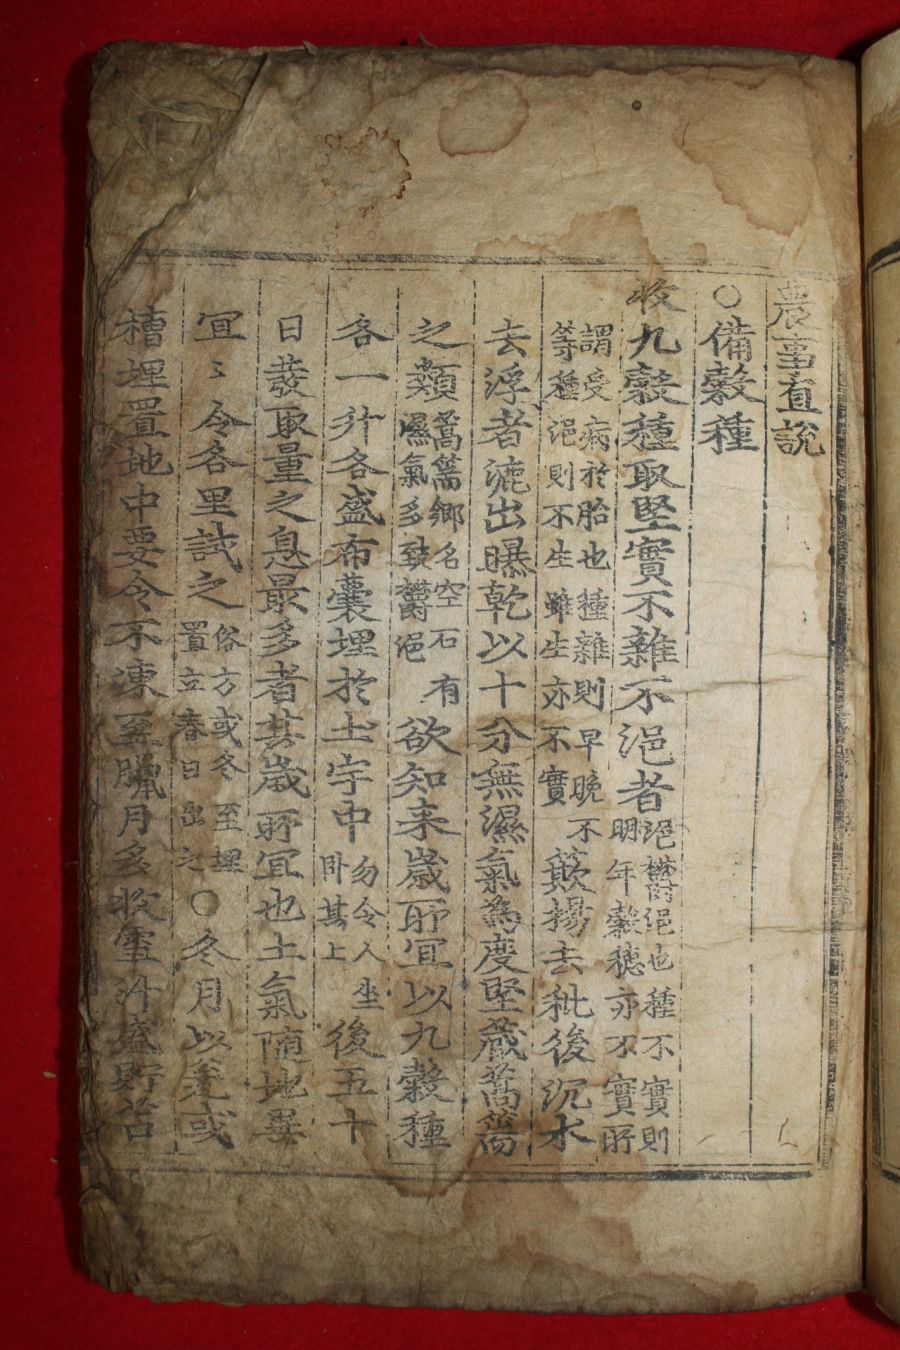 農事直說
○備穀種
收九穀種取堅實不雜不浥者浥欝浥也種不實則明年穀穗亦不實所
謂受病於胎也種雜則早晚不等種浥則不生雖生亦不實簸揚去秕後沉水
去浮者漉出曝乾以十分無濕氣為度堅藏蒿篅
之類蒿篅鄉名空石有濕氣多致欝浥欲知来歲所宜以九穀種
各一升各盛布囊埋於土宇中勿令人坐卧其上後五十
日發取量之息最多者其歲所宜也土氣隨地異
宜〻令各里試之俗方或冬至埋置立春日出之○冬月以瓮或
槽埋置地中要令不凍至臘月多收雪汁盛貯苫